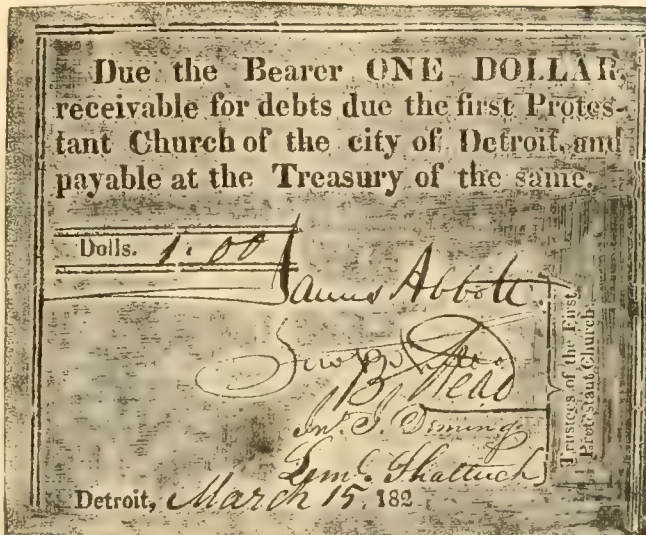 Due the Bearer ONE DOLLAR,
receivable for debts due the first Protes-
tant Church of the city of Detroit, and
payable at the Treasury of the same.
Dolls. 1.00
James Abbott
B Stead
Jnº. J. Deming
Leml. Shattuck
Trustees of the First
Protestant Church.
Detroit, March 15, 182